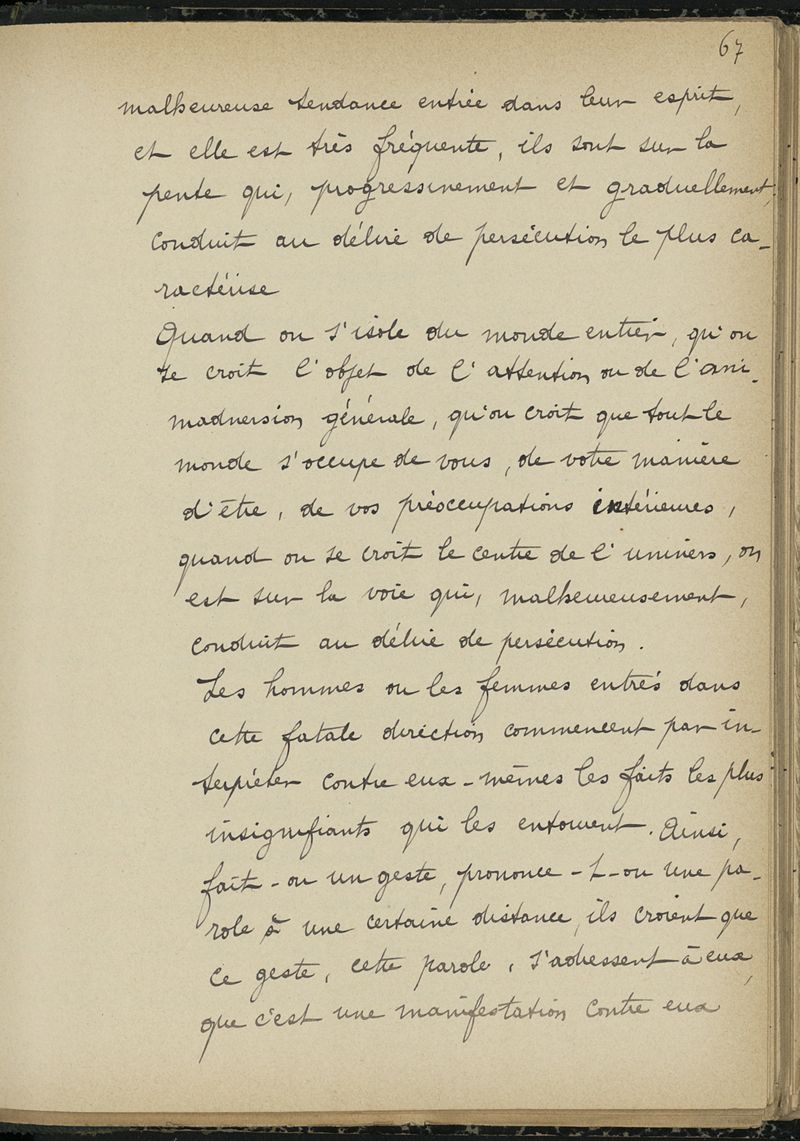 67
malheureuse tendance entrée dans leur esprit,
et elle est très fréquente, ils sont sur la
pente qui, progressivement et graduellement,
conduit au délire de persécution le plus ca-
ractérise
Quand on s'isole du monde entier, qu'on
se croit l'objet de l'attention ou de l'ani-
madversion générale, qu'on croit que tout le
monde s'occupe de vous, de votre manière
d'être, de vos préoccupations intérieures,
quand on se croit le centre de l'univers, on
est sur la voie qui, malheureusement,
conduit au délire de persécution.
Les hommes ou les femmes entrés dans
cette fatale direction commencent par in-
terpréter contre eux-mêmes les faits les plus
insignifiants qui les entourent. Ainsi,
fait-on un geste, prononce-t-on une pa-
role à une certaine distance, ils croient que
ce geste, cette parole, s'adressent à eux,
que c'est une manifestation contre eux